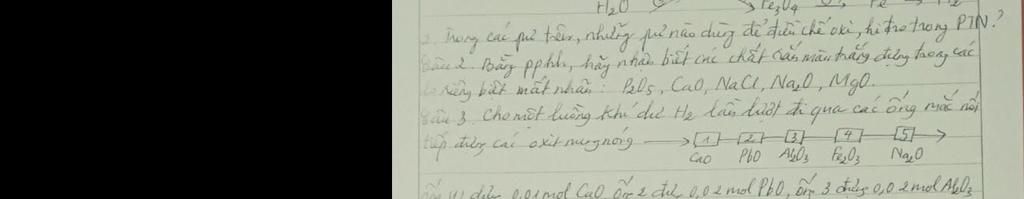 H₂O Fe₃O₄
2. Trong các pứ trên, những pứ nào dùng để điều chế oxi, hiđro trong PTN?
Câu 2. Bằng pphh, hãy nhận biết các chất rắn màu trắng đựng trong các
lọ riêng biệt mất nhãn: P₂O₅, CaO, NaCl, Na₂O, MgO.
Câu 3. Cho một luồng khí dư H₂ lần lượt đi qua các ống mắc nối
tiếp đựng các oxit nung nóng → 1 2 3 4 5 →
CaO PbO Al₂O₃ Fe₂O₃ Na₂O
đựng 0,01 mol CaO, ống 2 đựng 0,02 mol PbO, ống 3 đựng 0,02 mol Al₂O₃